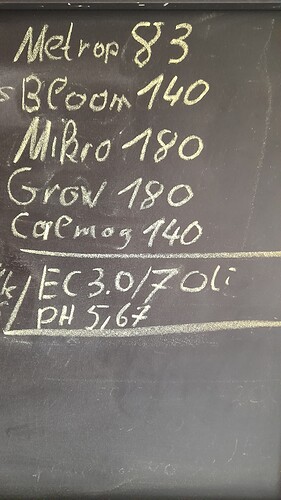 Metrop 83
Bloom 140
Mikro 180
Grow 180
Calmag 140
EC 3.0/7 Oli
PH 5,67